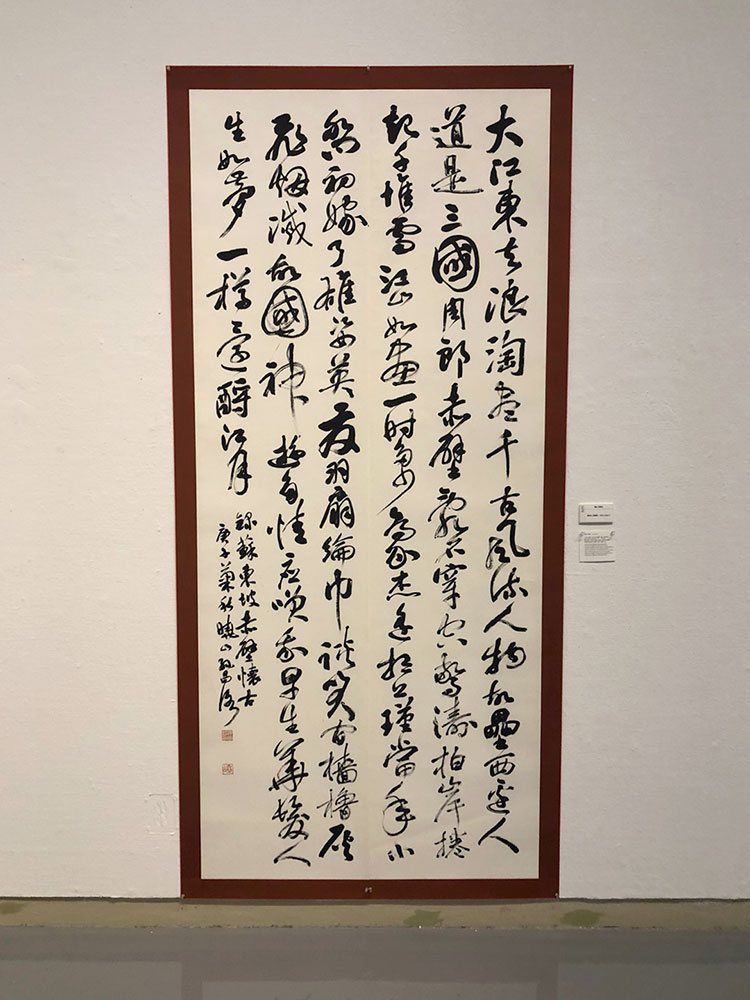 大江東去浪淘盡千古風流人物故壘西邊人
道是三國周郎赤壁亂石穿空驚濤拍岸捲
起千堆雪江山如畫一時多少豪傑遙想公瑾當年小
喬初嫁了雄姿英發羽扇綸巾談笑間檣櫓灰
飛煙滅故國神遊多情應笑我早生華髮人
生如夢一樽還酹江月
錄蘇東坡赤壁懷古
庚子菊秋曉山孫昌